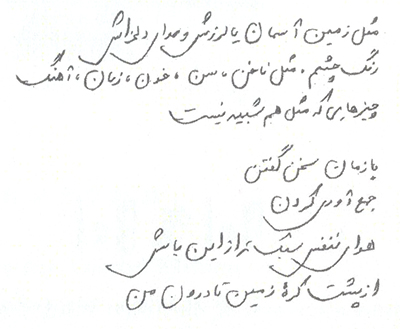 مثل زمین آسمان با لرزش و صدای دلخراش
رنگ چشم، مثل ناخن، سن، خون، زمان، آهنگ
چیزهایی که مثل هم شبیه نیست
با زمان سخن گفتن
جمع آوری کردن
هوای تنفس سبک تر از این باش
از پشت کرهٔ زمین تا درون من